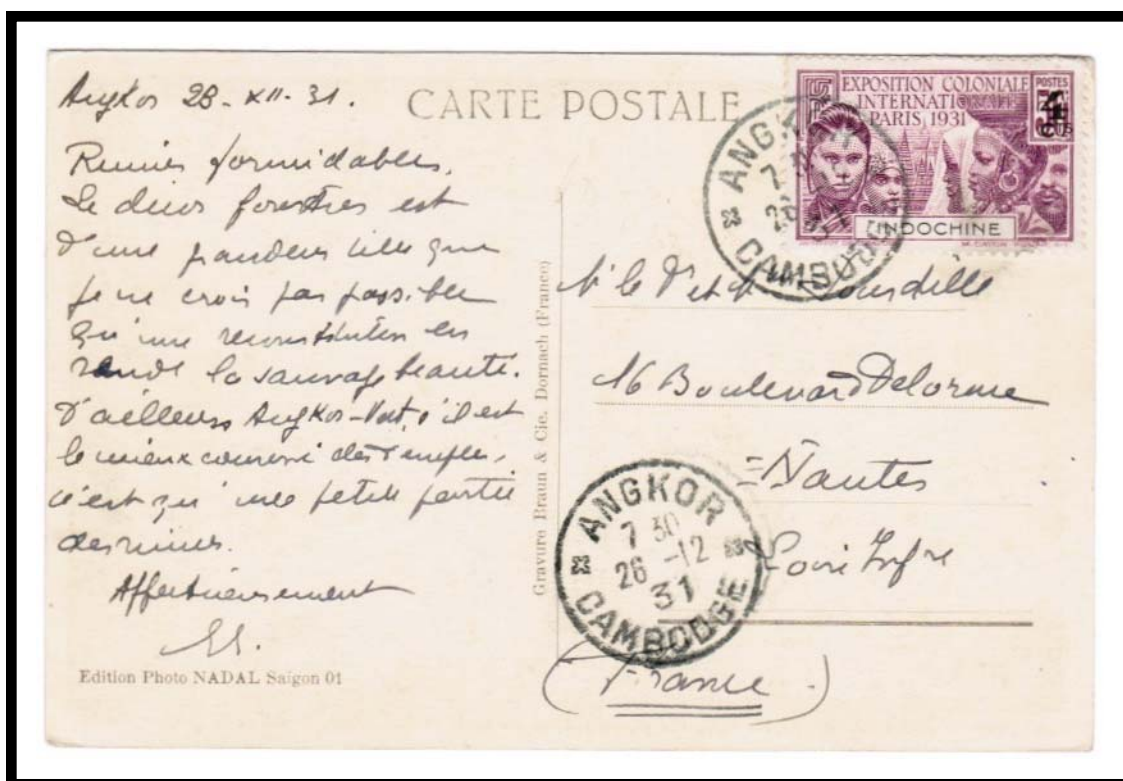 Angkor 28-XII-31.
CARTE POSTALE
Ruines formidables.
Le décor forestier est
d'une grandeur telle que
je ne crois pas possible
qu'une reconstitution en
rende la sauvage beauté.
D'ailleurs Angkor-Vat, s'il est
le mieux conservé des temples,
n'est qu'une petite partie
des ruines.
Affectueusement
Edition Photo NADAL Saïgon 01
Gravure Braun & Cie. Dornach (France)
EXPOSITION COLONIALE
INTERNATIONALE
PARIS 1931
POSTES
INDOCHINE
ANGKOR
CAMBODGE
16 Boulevard Delorme
Nantes
Loire Infre
(France)
ANGKOR
7 30
26 -12
31
CAMBODGE